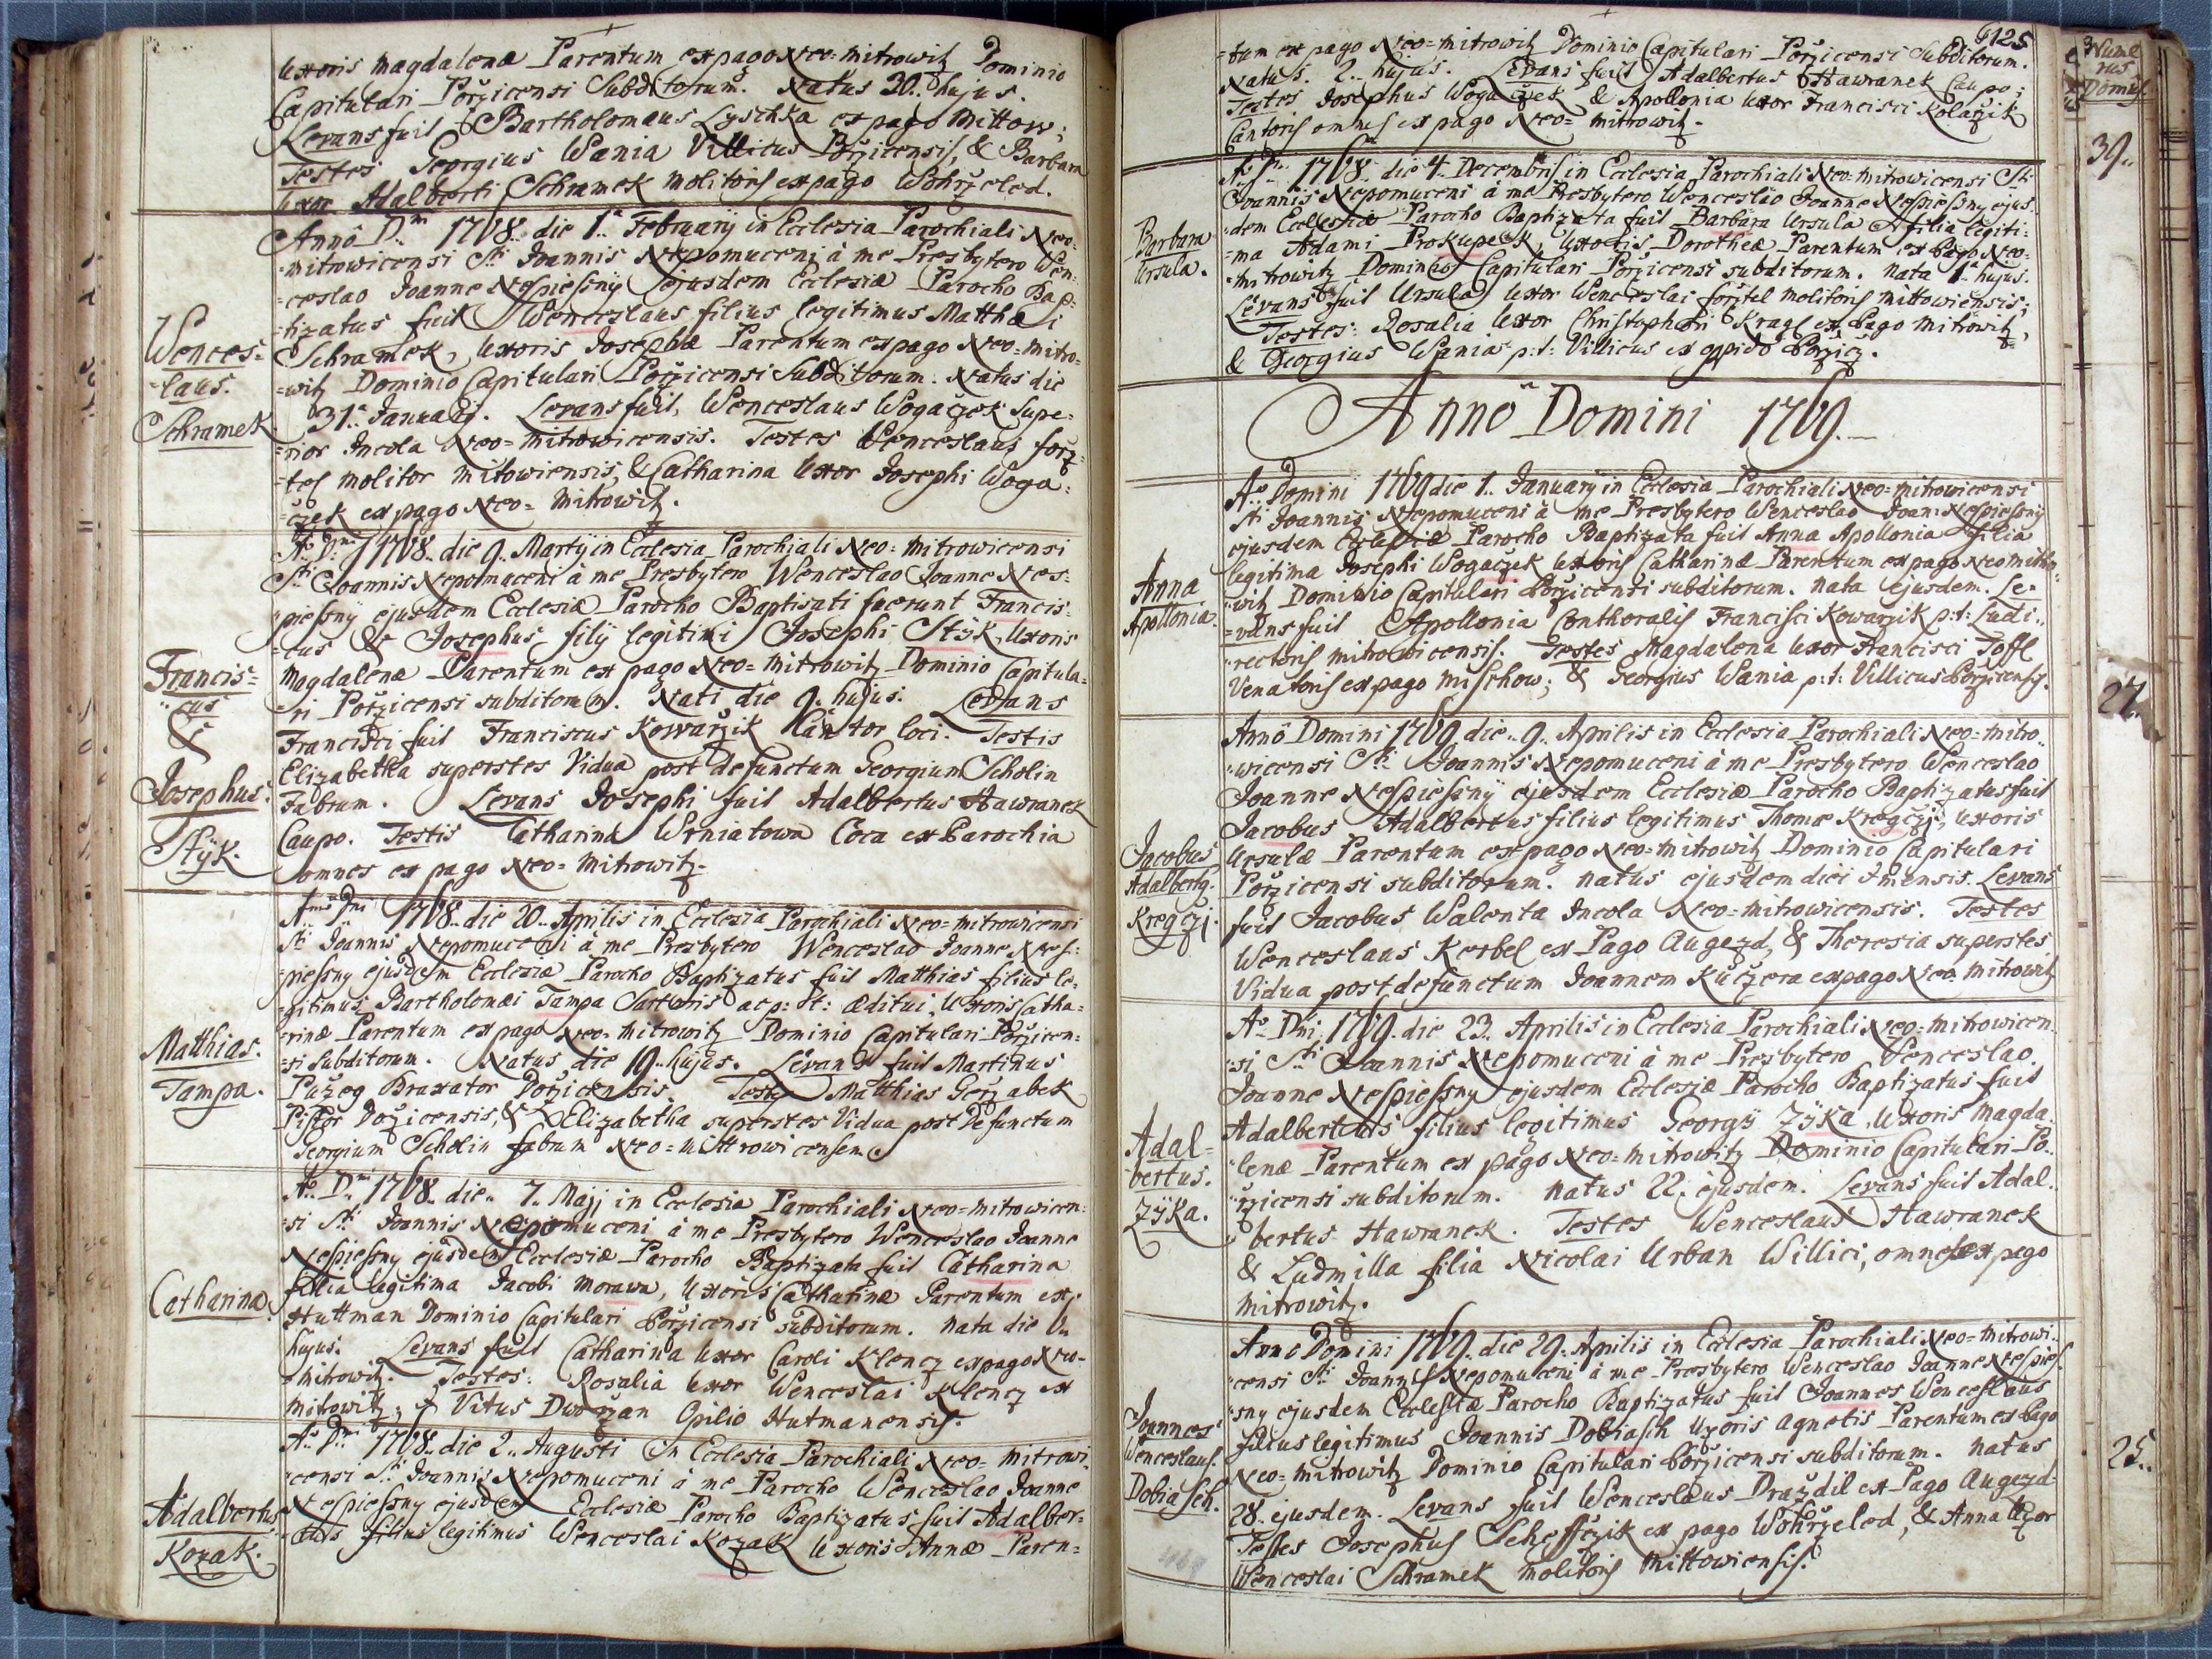 Uxoris Magdalenæ Parentum ex pago Neo=Mitrowitz Dominio
Capitulari Pořzicensi Subditorum. Natus 30. hujus.
Levans fuit Bartholomæus Lyschka ex pago Mittow;
Testes Georgius Wania Villicus Pořzicensis, & Barbara
Uxor Adalberti Schramek Molitoris ex pago Wohrželed.
Wences=
=laus.
Schramek
Annô D.ni 1768. die 1.a February in Ecclesia Parochiali Neo=
=mitrowicensi Sti Joannis Nepomuceni à me Presbytero Wen=
=ceslao Joanne Nespiessný ejusdem Ecclesiæ Parocho Bap=
=tizatus fuit Wenceslaus filius legitimus Matthæi
Schramek, Uxoris Josephæ Parentum ex pago Neo=mitro=
=witz Dominio Capitulari Pořzicensi Subditorum. Natus die
31.a Januarÿ. Levans fuit, Wenceslaus Wogaczek Supe=
=rior Incola Neo=mitrowicensis. Testes Wenceslaus forz=
=tel molitor mitowiensis, & Catharina Uxor Josephi Woga=
=czek ex pago Neo=Mitrowitz.
Francis=
=cus
&
Josephus.
Stÿk.
Ao Dni 1768. die 9. Martÿ in Ecclesia Parochiali Neo=mitrowicensi
Sti Joannis Nepomuceni à me Presbytero Wenceslao Joanne Nes=
=piessny ejusdem Ecclesiæ Parocho Baptisati fuerunt Francis=
=cus & Josephus filÿ legitimi Josephi Stÿk, Uxoris
Magdalenæ Parentum ex pago Neo=Mitrowitz Dominio Capitula=
=ri Pořzicensi subditorum. Nati die 9. hujus. Levans
Francisci fuit Franciscus Kowařzik Cantor loci. Testis
Elizabetha superstes Vidua post defunctum Georgium Scholin
Fabrum. Levans Josephi fuit Adalbertus Hawranek
Caupo. Testis Catharina Wrniatowa Coca ex Parochia
omnes ex pago Neo=Mitrowitz.
Matthias.
Tampa.
Anno Dni 1768. die 20. Aprilis in Ecclesia Parochiali Neo=mitrowicensi
Sti Joannis Nepomuceni à me Presbytero Wenceslao Joanne Nes=
=piessny ejusdem Ecclesiæ Parocho Baptizatus fuit Matthias filius le=
=gitimus Bartholomæi Tampa Sartoris ac p: t: æditui, Uxoris Catha=
=rinæ Parentum ex pago Neo=Mitrowitz Dominio Capitulari Pořzicen=
=si Subditorum. Natus die 19. hujus. Levans fuit Martinus
Pužeg Braxator Pořzicensis. Testes Matthias Geržabek
Pistor Pořzicensis, & Elizabetha superstes Vidua post Defunctum
Georgium Scholin fabrum Neo=Mittrowicensem
Catharina.
Ao Dni 1768. die 7. Maji in Ecclesia Parochiali Neo=mitrowicen=
=si Sti Joannis Nepomuceni à me Presbytero Wenceslao Joanne
Nespiessny ejusdem Ecclesiæ Parocho Baptizata fuit Catharina
filia legitima Jacobi Morawa, Uxoris Catharinæ Parentum ex
Huttman Dominio Capitulari Pořzicensi Subditorum. Nata die 6.
hujus. Levans fuit Catharina Uxor Caroli Klencz ex pago Neo=
=mitrowitz. Testes: Rosalia Uxor Wenceslai Klencz ex
Mitrowitz; & Vitus Dworzan Opilio Hutmanensis.
Adalbertus
Kozak.
Ao Dni 1768. die 2. Augusti in Ecclesia Parochiali Neo=mitrowi=
=censi Sti Joannis Nepomuceni à me Parocho Wenceslao Joanne
Nespiessny ejusdem Ecclesiæ Parocho Baptizatus fuit Adalber=
=tus filius legitimus Wenceslai Kozak Uxoris Annæ Paren=
125
Nume
rus
Domus
=tum ex pago Neo=Mitrowitz Dominio Capitulari Pořzicensi Subditorum.
Natus. 2. hujus. Levans fuit Adalbertus Hawranek Caupo;
Testes Josephus Wogaczek & Apollonia Uxor Francisci Kolařzik
Cantoris omnes ex pago Neo=Mitrowitz.
39.
Barbara
Ursula.
Ao Dni 1768. die 4. Decembris in Ecclesia Parochiali Neo=mitrowicensi Sti
Joannis Nepomuceni à me Presbytero Wenceslao Joanne Nespiessny ejus=
=dem Ecclesiæ Parocho Baptizata fuit Barbara Ursula filia legiti=
=ma Adami Prokupek, Uxoris Dorotheæ Parentum ex Pago Neo=
=Mitrowitz Dominio Capitulari Pořzicensi subditorum. Nata 1. hujus.
Levans fuit Ursula Uxor Wenceslai forztel Molitoris Mittowiensis;
Testes: Rosalia Uxor Christophori Kragl ex Pago Mitrowitz,
& Georgius Wania p: t: Villicus ex oppido Pořzicz.
Annô Domini 1769.
Anna
Apollonia.
Ao Domini 1769 die 1. January in Ecclesia Parochiali Neo=mitrowicensi
Sti Joannis Nepomuceni à me Presbytero Wenceslao Joan: Nespiessny
ejusdem Ecclesiæ Parocho Baptizata fuit Anna Apollonia filia
legitima Josephi Wogaczek Uxoris Catharinæ Parentum ex pago Neomitro=
=witz Dominio Capitulari Pořzicensi subditorum. Nata ejusdem. Le=
=vans fuit Apollonia Conthoralis Francisci Kowarzik p: t: Ludi=
=rectoris mitrowicensis. Testes Magdalena Uxor Francisci Toffl
Venatoris ex pago Mischow; & Georgius Wania p: t: Villicus Pořzicensis.
27.
Jacobus
Adalbertg.
Kregczj.
Annô Domini 1769 die. 9. Aprilis in Ecclesia Parochiali Neo=mitro=
=wicensi Sti Joannis Nepomuceni à me Presbytero Wenceslao
Joanne Nespiessný ejusdem Ecclesiæ Parocho Baptizatus fuit
Jacobus Adalbertus filius legitimus Thomæ Kregczj, Uxoris
Ursulæ Parentum ex pago Neo=Mitrowitz Dominio Capitulari
Pořzicensi subditorum. Natus ejusdem diei & mensis. Levans
fuit Jacobus Walenta Incola Neo=mitrowicensis. Testes
Wenceslaus Korbel ex Pago Augezd, & Theresia superstes
Vidua post defunctum Joannem Kuczera ex pago Neo Mitrowitz
Adal=
=bertus.
Zÿka.
Ao Dni 1769. die 23. Aprilis in Ecclesia Parochiali Neo=mitrowicen=
=si Sti Joannis Nepomuceni à me Presbytero Wenceslao
Joanne Nespiessny ejusdem Ecclesiæ Parocho Baptizatus fuit
Adalbertus filius legitimus Georgÿ Zÿka, Uxoris Magda=
=lenæ Parentum ex pago Neo=mitrowitz Dominio Capitulari Po=
=řzicensi subditorum. Natus 22. ejusdem. Levans fuit Adal=
=bertus Hawranek. Testes Wenceslaus Hawranek
& Ludmilla filia Nicolai Urban Willici, omnes ex pago
Mitrowitz.
25.
Joannes
Wenceslaus.
Dobiasch.
Anno Domini 1769. die 29. Aprilis in Ecclesia Parochiali Neo=mitrowi=
=censi Sti Joannis Nepomuceni à me Presbytero Wenceslao Joanne Nespies=
=sny ejusdem Ecclesiæ Parocho Baptizatus fuit Joannes Wenceslaus
filius legitimus Joannis Dobiasch Uxoris Agnetis Parentum ex Pago
Neo=Mitrowitz Dominio Capitulari Pořzicensi subditorum. Natus
28. ejusdem. Levans fuit Wenceslaus Draždil ex Pago Augezd
Testes Josephus Scheffczik ex pago Wohrželed, & Anna Uxor
Wenceslai Schramek Molitoris Mittowiensis.